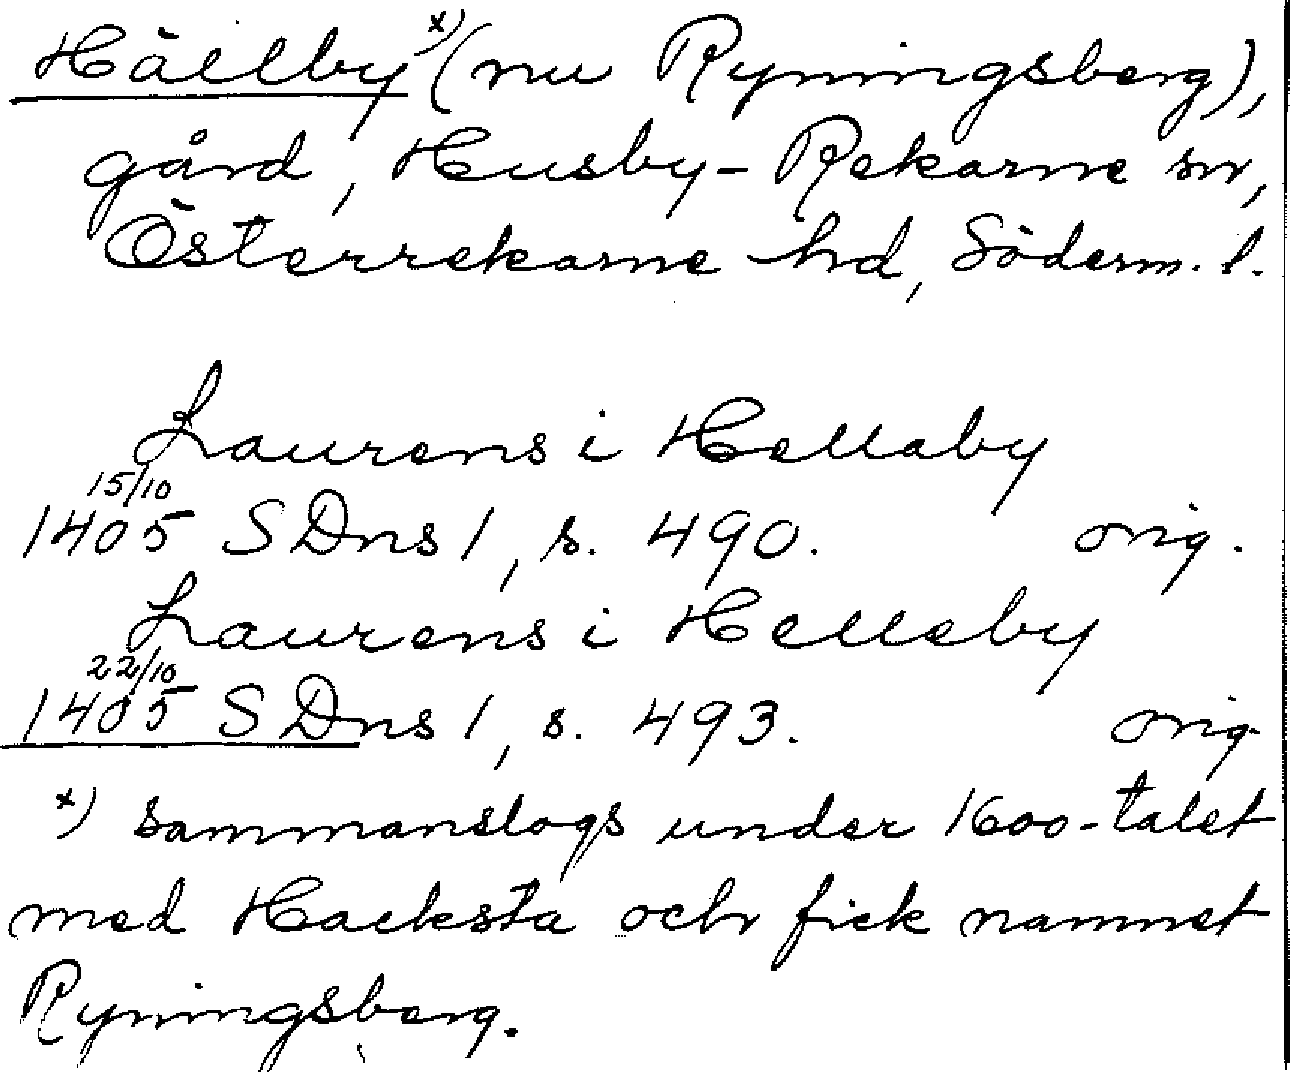 Hällby x) (nu Ryningsberg),
gård, Husby-Rekarne sn,
Österrekarne hd, Söderm. l.
Laurens i Hellaby
15/10
1405 SDns 1, s. 490. orig.
Laurens i Helleby
22/10
1405 SDns 1, s. 493. orig.
x) sammanslogs under 1600-talet
med Hacksta och fick namnet
Ryningsberg.